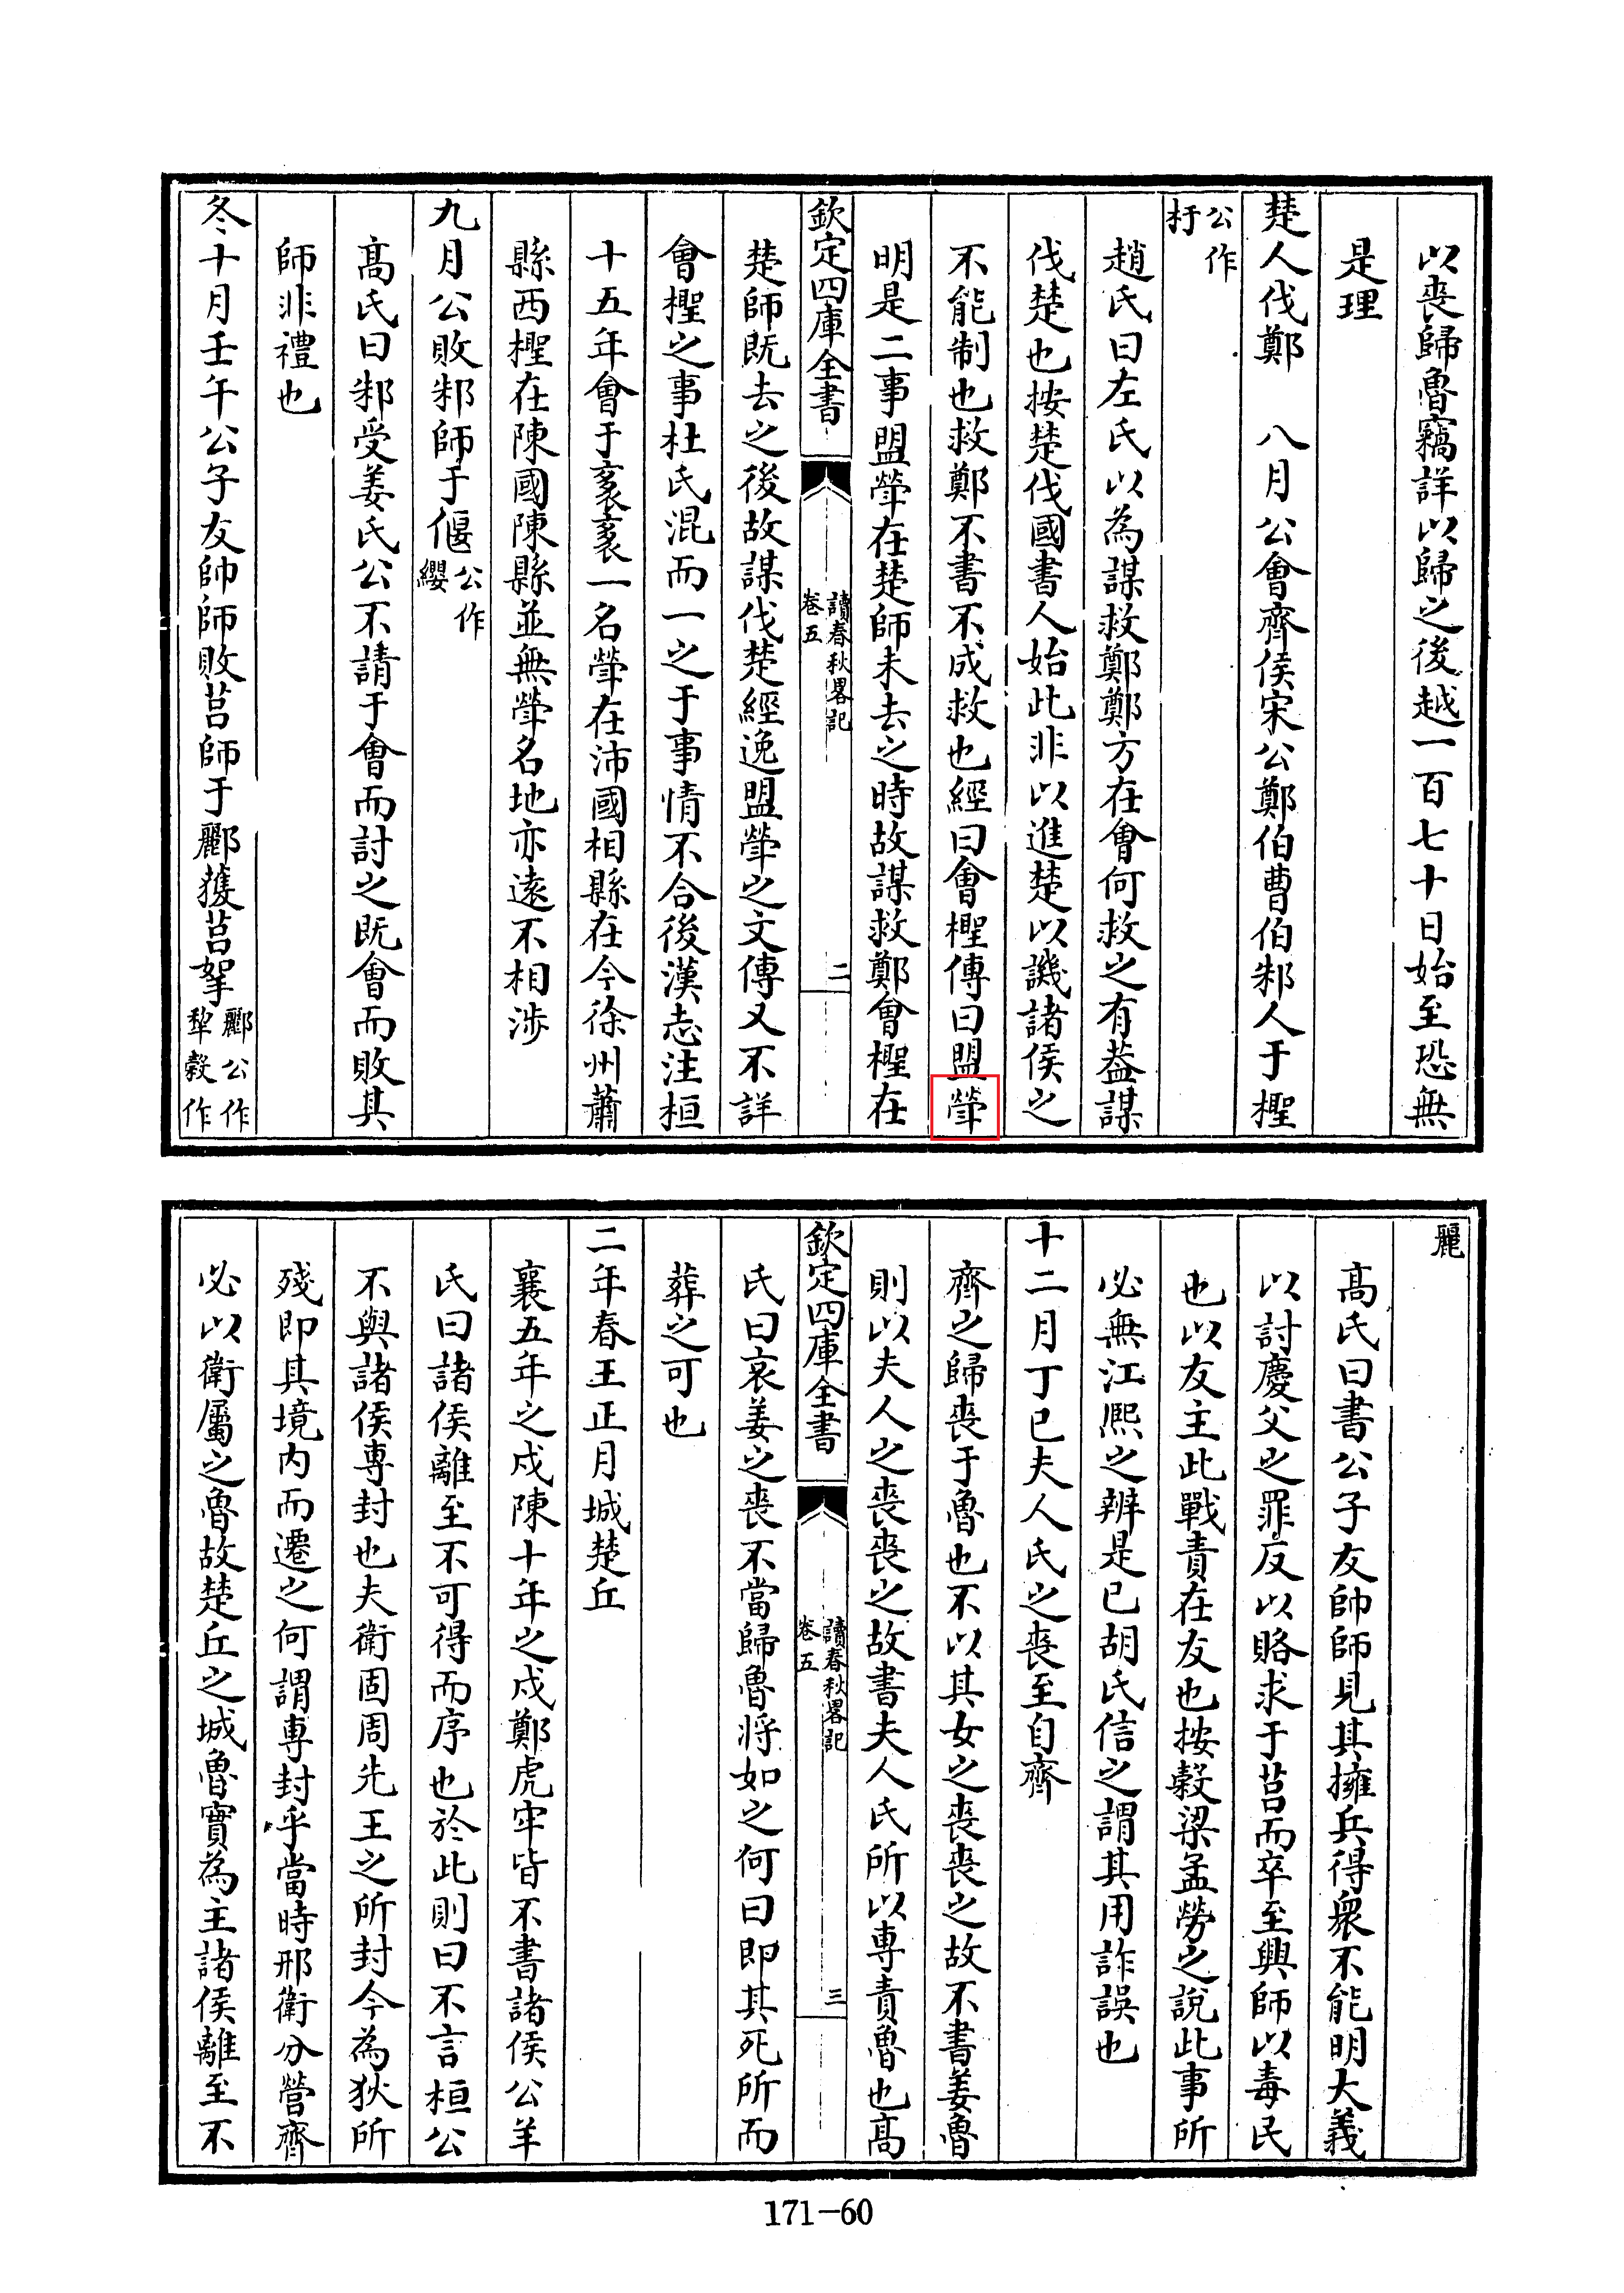 以喪歸魯竊詳以歸之後越一百七十日始至恐無
是理
楚人伐鄭　八月公會齊侯宋公鄭伯曹伯邾人于檉
公作
朾
趙氏曰左氏以為謀救鄭鄭方在會何救之有葢謀
伐楚也按楚伐國書人始此非以進楚以譏諸侯之
不能制也救鄭不書不成救也經曰會檉傳曰盟犖
明是二事盟犖在楚師未去之時故謀救鄭會檉在
欽定四庫全書
讀春秋畧記
卷五
二
楚師既去之後故謀伐楚經逸盟犖之文傳又不詳
會檉之事杜氏混而一之于事情不合後漢志注桓
十五年會于袲袲一名犖在沛國相縣在今徐州蕭
縣西檉在陳國陳縣並無犖名地亦遠不相涉
九月公敗邾師于偃公作
纓
高氏曰邾受姜氏公不請于會而討之既會而敗其
師非禮也
冬十月壬午公子友帥師敗莒師于酈獲莒挐酈公作
犂穀作
麗
高氏曰書公子友帥師見其擁兵得衆不能明大義
以討慶父之罪反以賂求于莒而卒至興師以毒民
也以友主此戰責在友也按穀梁孟勞之說此事所
必無江熙之辨是已胡氏信之謂其用詐誤也
十二月丁巳夫人氏之喪至自齊
齊之歸喪于魯也不以其女之喪喪之故不書姜魯
則以夫人之喪喪之故書夫人氏所以專責魯也高
欽定四庫全書
讀春秋畧記
卷五
三
氏曰哀姜之喪不當歸魯將如之何曰即其死所而
葬之可也
二年春王正月城楚丘
襄五年之戍陳十年之戍鄭虎牢皆不書諸侯公羊
氏曰諸侯離至不可得而序也於此則曰不言桓公
不與諸侯專封也夫衛固周先王之所封今為狄所
殘即其境内而遷之何謂專封乎當時邢衛分營齊
必以衛屬之魯故楚丘之城魯實為主諸侯離至不
171-60